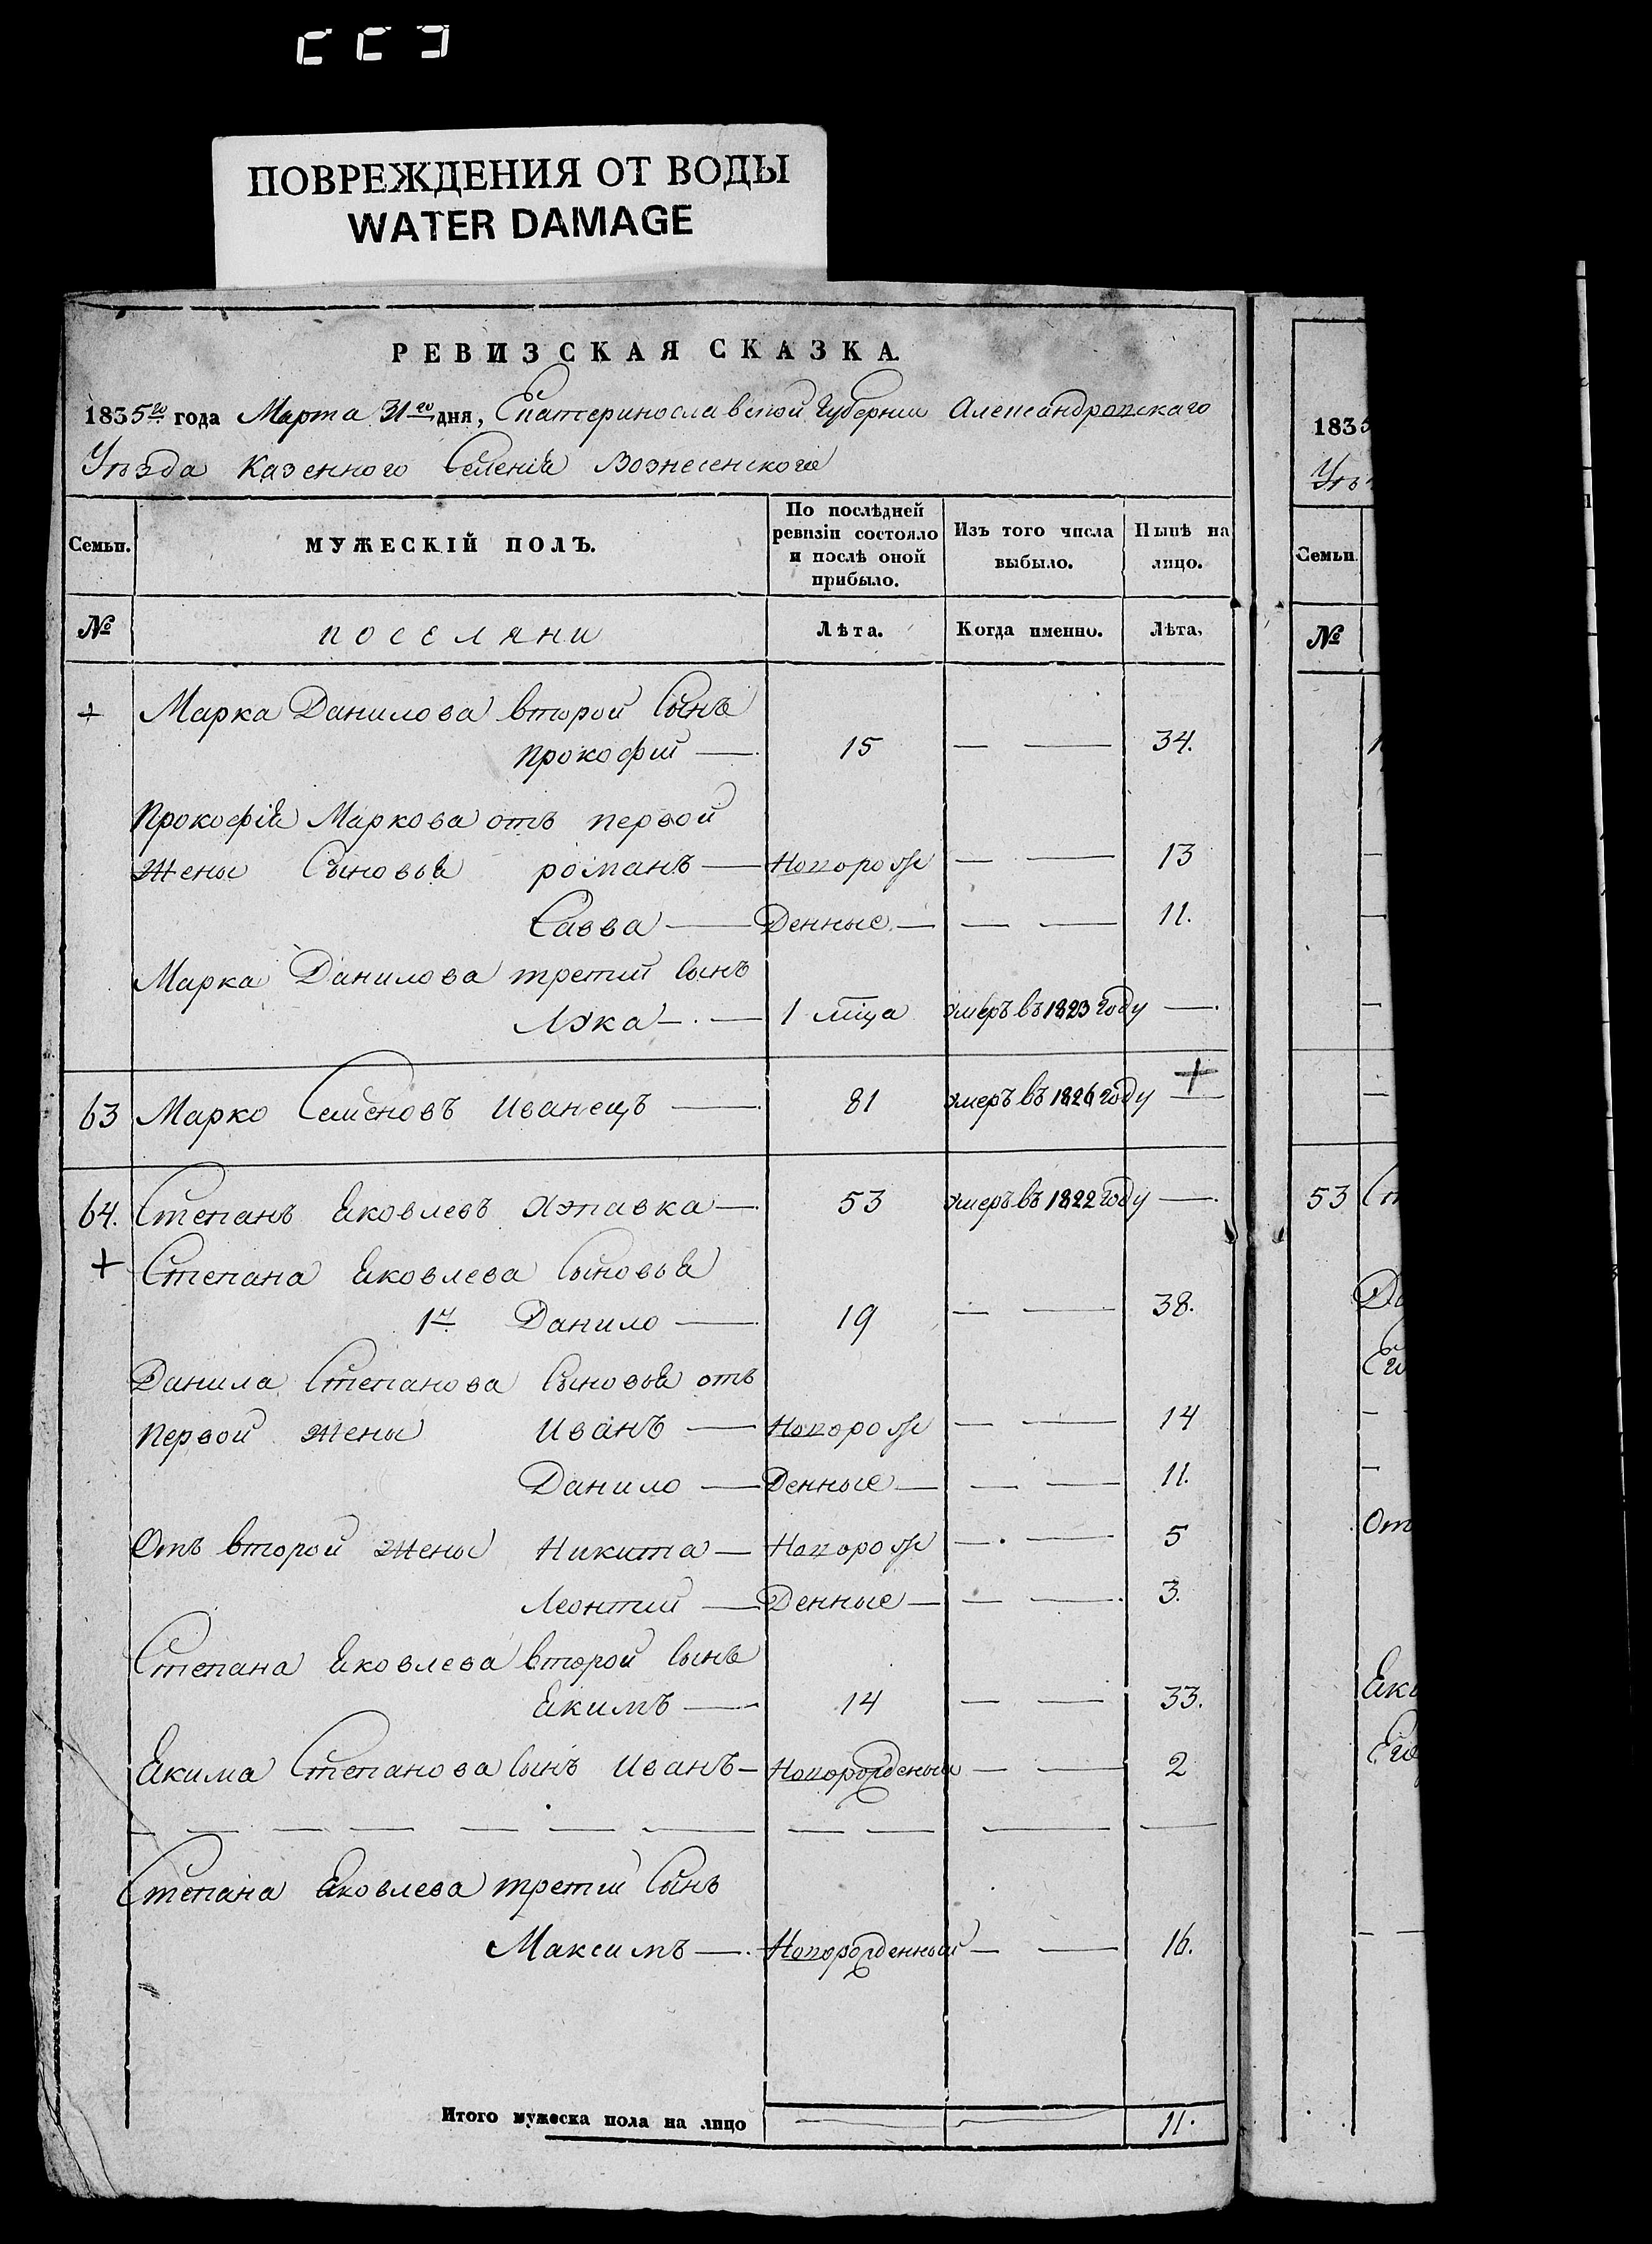 ПОВРЕЖДЕНИЯ ОТ ВОДЫ
WATER DAMAGE
РЕВИЗСКАЯ СКАЗКА.
1835го года Марта 31го дня, Екатеринославской Губернии Александровскаго
Уѣзда Казенного Селенія Вознесенского
Семьи. МУЖЕСКІЙ ПОЛЪ. По послѣдней ревизіи состояло и послѣ оной прибыло. Изъ того числа выбыло. Нынѣ на лицо.
№ поселяни Лѣта. Когда именно. Лѣта,
+ Марка Данилова второй Сынъ
Прокофій — 15 — — 34.
Прокофія Маркова отъ первой
жены Сыновья романъ — Новорож — — 13
Савва — Денные — — — 11.
Марка Данилова третий Сынъ
Лука — 1 мца умеръ въ 1823 году —
63 Марко Семеновъ Иванецъ — 81 умеръ въ 1826 году — +
64. Степанъ Яковлевъ — 53 умеръ въ 1822 году —
+ Степана Яковлева Сыновья
1й Данило — 19 — — 38.
Данила Степанова Сыновья отъ
первой жены Иванъ — Новорож — — 14
Данило — Денные — — — 11.
Отъ второй жены Никита — Новорож — — 5
Леонтий — Денные — — — 3.
Степана Яковлева второй Сынъ
Якимъ — 14 — — 33.
Якима Степанова Сынъ Иванъ — Новорожденый — — 2
Степана Яковлева третий Сынъ
Максимъ — Новорожденный — — 16.
Итого мужеска пола на лицо — — 11.
1835
Уѣ
Семьи.
№
53 Ст
Да
Ег
От
Яки
Ег